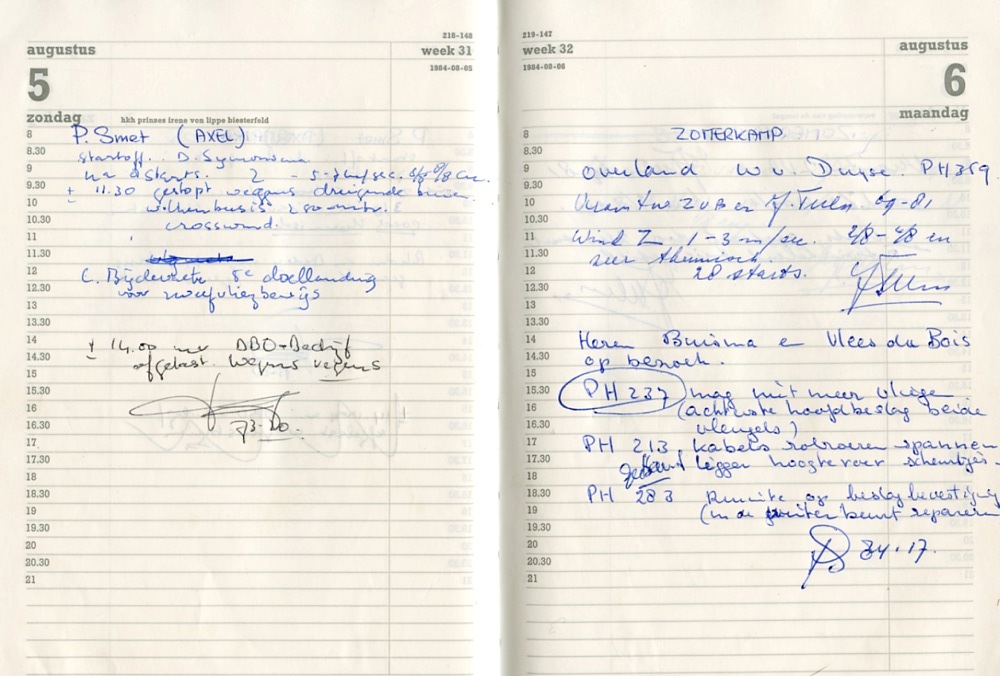 218-148
augustus
week 31
1984-08-05
5
zondag
hkh prinses irene von lippe biesterfeld
8
P. Smet (AXEL)
8.30
startoff. D.
9
na starts. 2 - 5-7 m/sec.
9.30
± 11.30 gestopt wegens dreigende buien
10
wolkenbasis 280 mtr.
10.30
crosswind.
11
11.30
12
C. 5e doellanding
12.30
voor zweefvliegbewijs
13
13.30
14
± 14.00 uur DBO-Bedrijf
14.30
afgelast. wegens regens
15
15.30
16
16.30
73-20.
17
17.30
18
18.30
19
19.30
20
20.30
21
219-147
week 32
augustus
1984-08-06
6
maandag
8
ZOMERKAMP
8.30
9
overland W v. Duyse. PH 359
9.30
10
69-81
10.30
11
Wind Z 1-3 m/sec. 2/8-4/8 en
11.30
zeer thermisch.
12
28 starts.
12.30
13
13.30
14
Heren Buisma e Vlees du Bois
14.30
op bezoek.
15
15.30
PH 237 mag niet meer vliegen
16
(achterste hoofdbeslag beide
16.30
vleugels)
17
PH 213 kabels rolroeren spannen
17.30
ligger hoogteroer scheurtjes.
18
18.30
PH 283 Ruimte op beslag bevestiging
19
(in de winter beurt repareren
19.30
20
84-17.
20.30
21